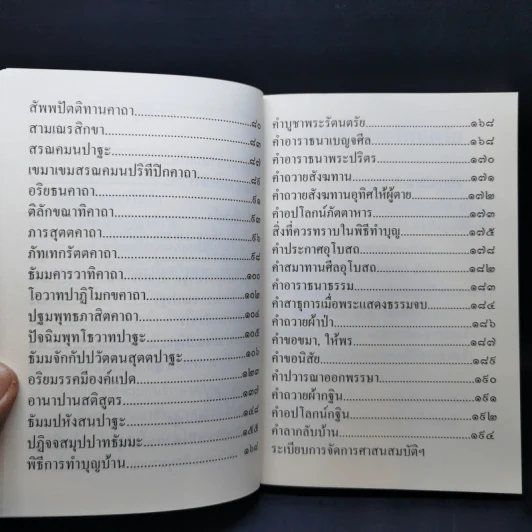 สัพพปัตติทานคาถา....................๘๐
สามเณรสิกขา....................๘๓
สรณคมนปาฐะ....................๘๗
เขมาเขมสรณคมนปริทีปิกคาถา....................๘๙
อริยธนคาถา....................๙๑
ติลักขณาทิคาถา....................๙๓
ภารสุตตคาถา....................๙๖
ภัทเทกรัตตคาถา....................๙๘
ธัมมคารวาทิคาถา....................๑๐๐
โอวาทปาฏิโมกขคาถา....................๑๐๒
ปฐมพุทธภาสิตคาถา....................๑๐๔
ปัจฉิมพุทโธวาทปาฐะ....................๑๐๕
ธัมมจักกัปปวัตตนสุตตปาฐะ....................๑๐๖
อริยมรรคมีองค์แปด....................๑๒๓
อานาปานสติสูตร....................๑๓๗
ธัมมปหังสนปาฐะ....................๑๔๔
ปฏิจจสมุปปาทธัมมะ....................๑๕๕
พิธีการทำบุญบ้าน....................๑๖๘
คำบูชาพระรัตนตรัย....................๑๖๘
คำอาราธนาเบญจศีล....................๑๖๘
คำอาราธนาพระปริตร....................๑๗๐
คำถวายสังฆทาน....................๑๗๑
คำถวายสังฆทานอุทิศให้ผู้ตาย....................๑๗๒
คำอปโลกน์ภัตตาหาร....................๑๗๓
สิ่งที่ควรทราบในพิธีทำบุญ....................๑๗๕
คำประกาศอุโบสถ....................๑๗๘
คำสมาทานศีลอุโบสถ....................๑๘๒
คำอาราธนาธรรม....................๑๘๓
คำสาธุการเมื่อพระแสดงธรรมจบ....................๑๘๔
คำถวายผ้าป่า....................๑๘๖
คำขอขมา, ให้พร....................๑๘๗
คำขอนิสัย....................๑๘๙
คำปวารณาออกพรรษา....................๑๙๐
คำถวายผ้ากฐิน....................๑๙๑
คำอปโลกน์กฐิน....................๑๙๒
คำลากลับบ้าน....................๑๙๔
ระเบียบการจัดการศาสนสมบัติฯ